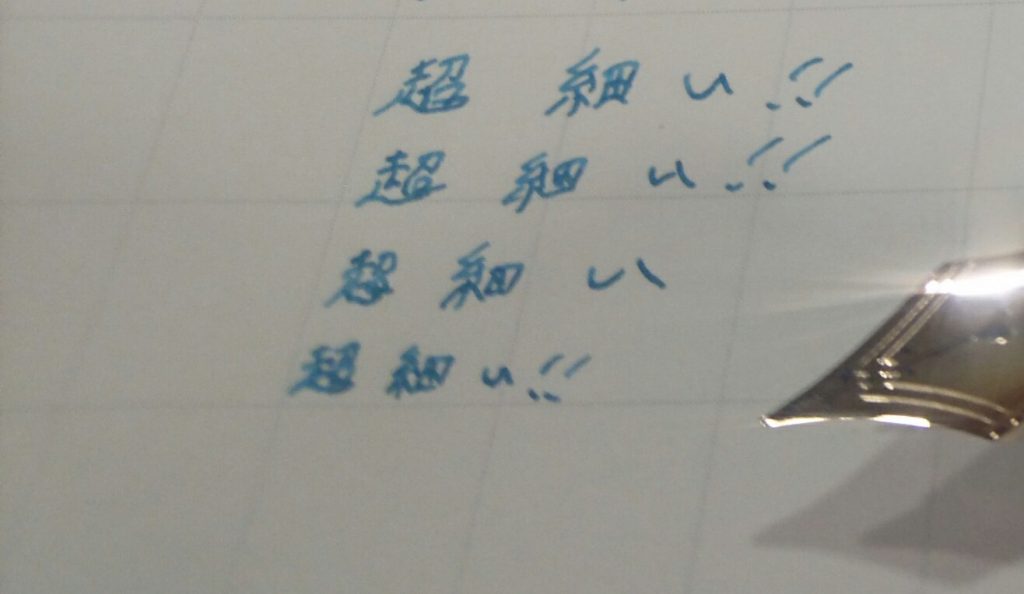 超細い!!
超細い!!
超細い
超細い!!